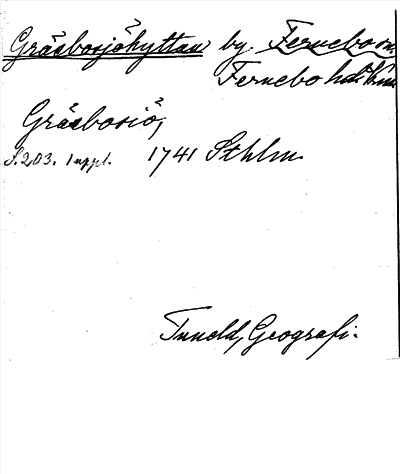 Gråsbosjöhyttan by. Fernebo sn.
Fernebo hd.
Gråsbosiö,
S. 203. 1 uppl. 1741 Sthlm.
Tuneld, Geografi.